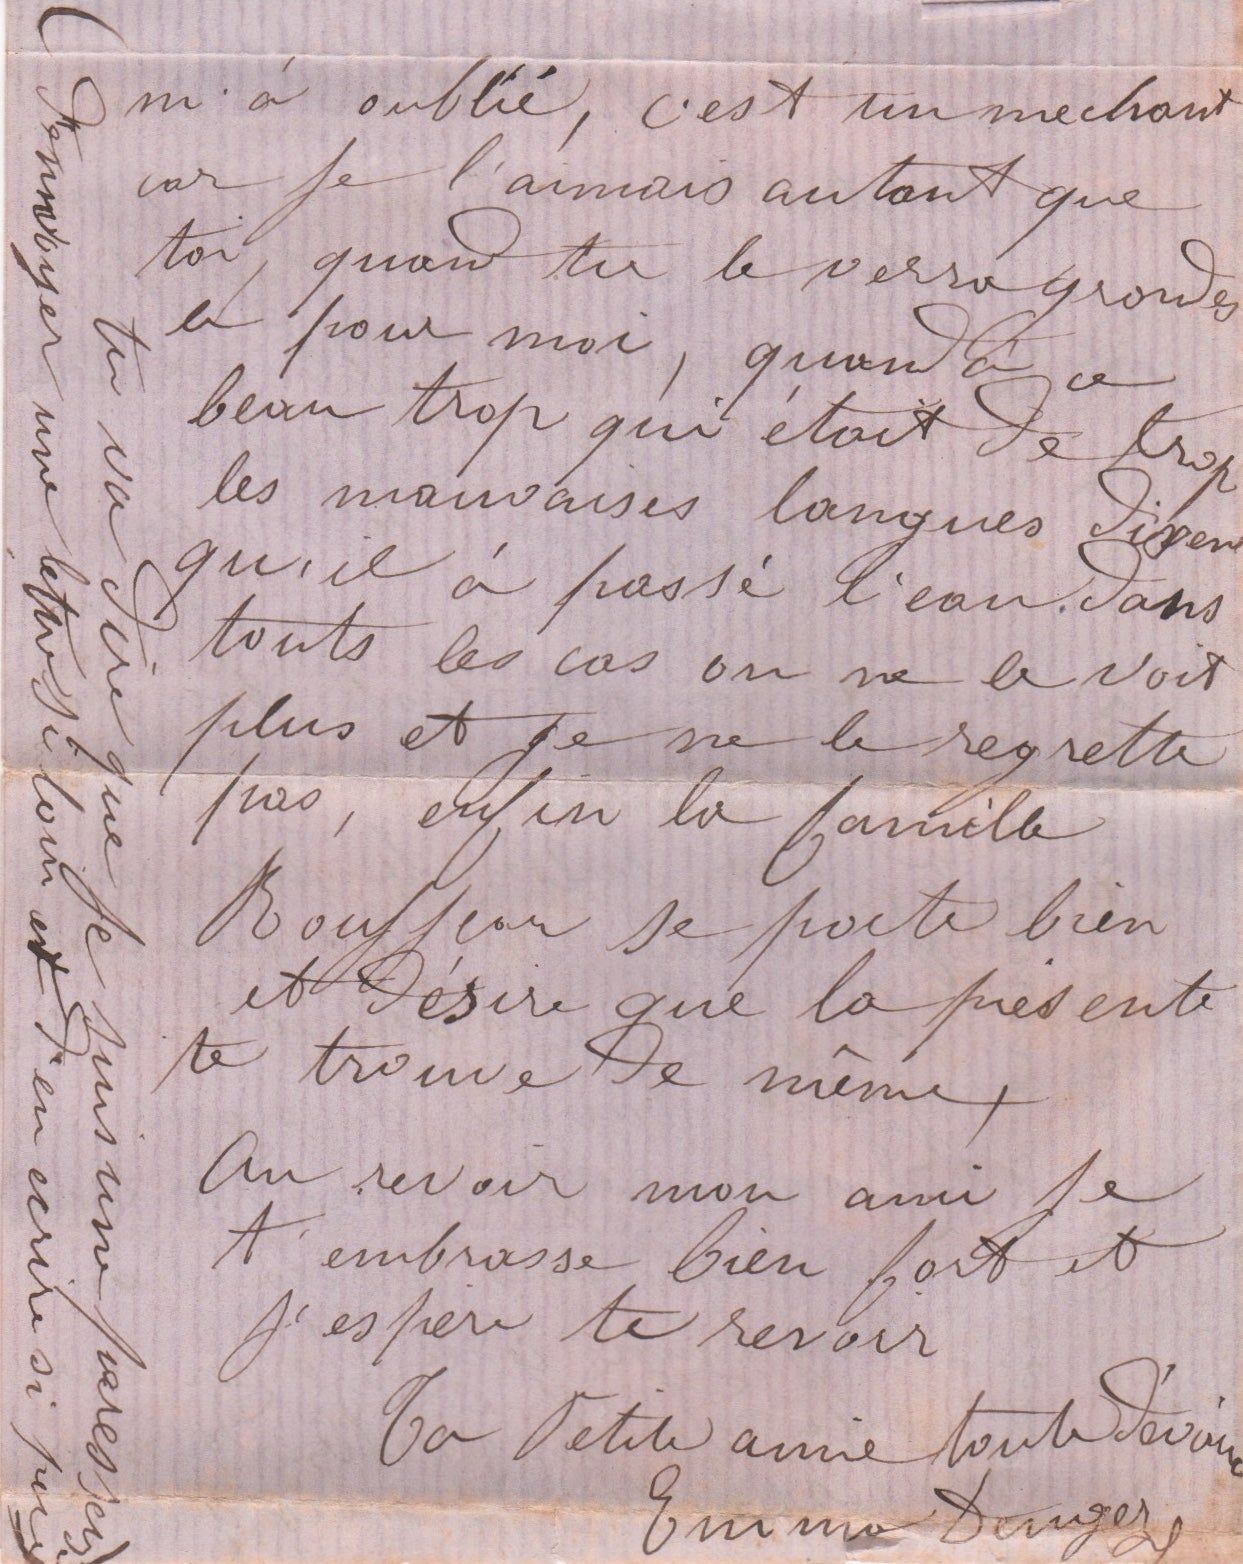 m'à oublié, c'est un mechant
car je l'aimais autant que
toi, quand tu le verra grondes
le pour moi, quand à ce
beau trop qui était de trop
les mauvaises langues disent
qu'il à passé l'eau. dans
touts les cas on ne le voit
plus et je ne le regrette
pas, enfin la famille
se porte bien
et désire que la présente
te trouve de même,
Au revoir mon ami je
t'embrasse bien fort et
j'espère te revoir
Ta Petite amie toute dévouée
Emma
tu va dire que je suis une paresseuse
d'envoyer une lettre si loin et d'en ecrire si peu